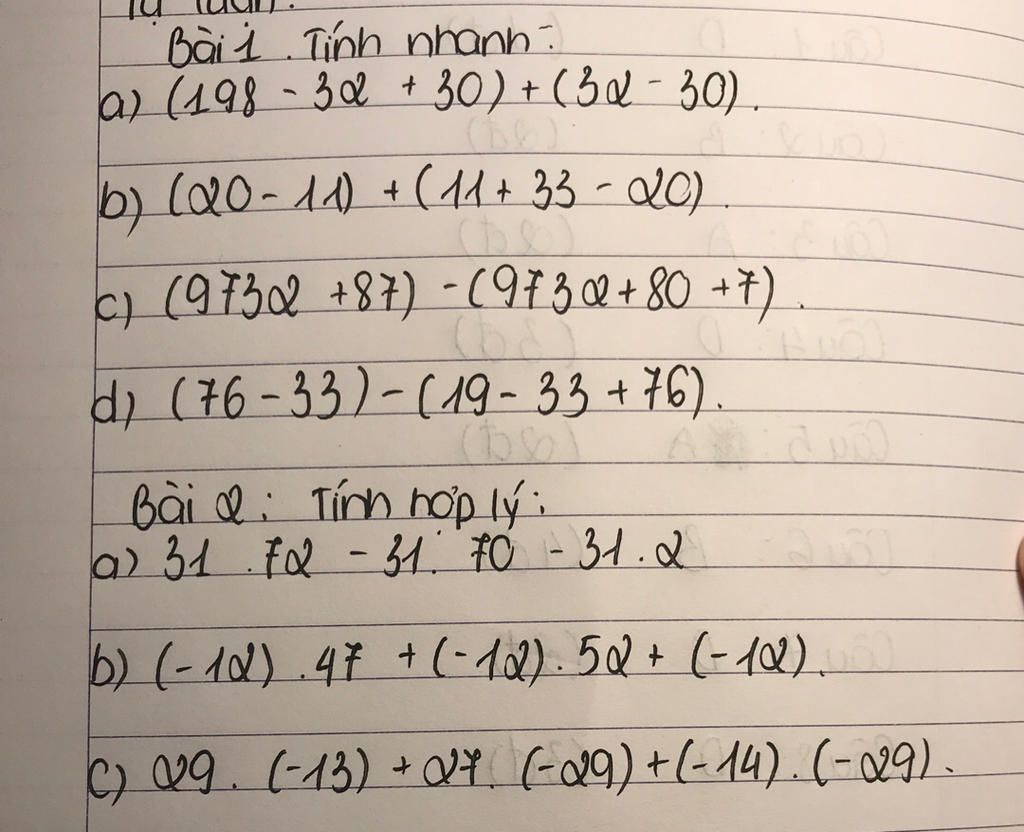 Tự luận:
Bài 1. Tính nhanh:
a) (198 - 32 + 30) + (32 - 30).
b) (20 - 11) + (11 + 33 - 20).
c) (9732 + 87) - (9732 + 80 + 7).
d) (76 - 33) - (19 - 33 + 76).
Bài 2: Tính hợp lý:
a) 31 . 72 - 31 . 70 - 31 . 2
b) (-12) . 47 + (-12) . 52 + (-12).
c) 29 . (-13) + 27 . (-29) + (-14) . (-29).